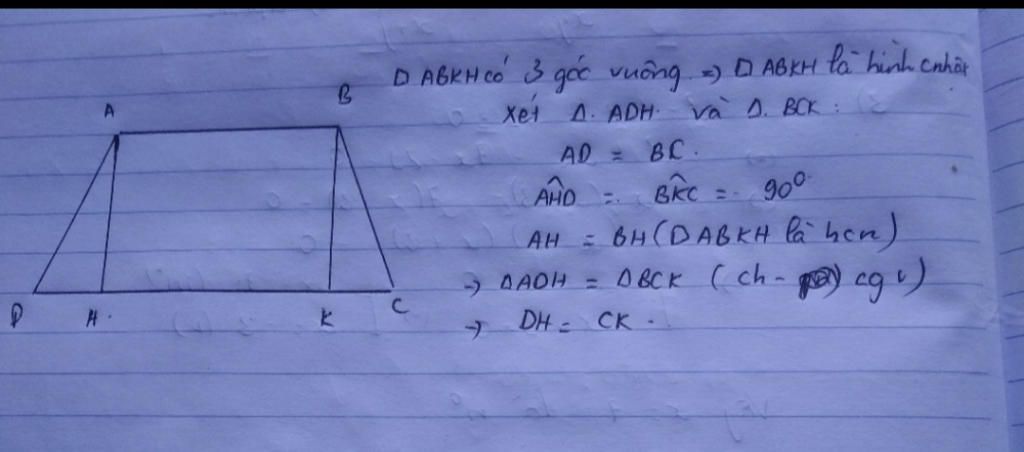 A
B
D
H
K
C
□ ABKH có 3 góc vuông => □ ABKH là hình cnhật
xét Δ. ADH và Δ. BCK :
AD = BC.
AĤD = BK̂C = 90⁰
AH = BH (□ ABKH là hcn)
→ ΔADH = ΔBCK ( ch - cgv)
→ DH = CK .